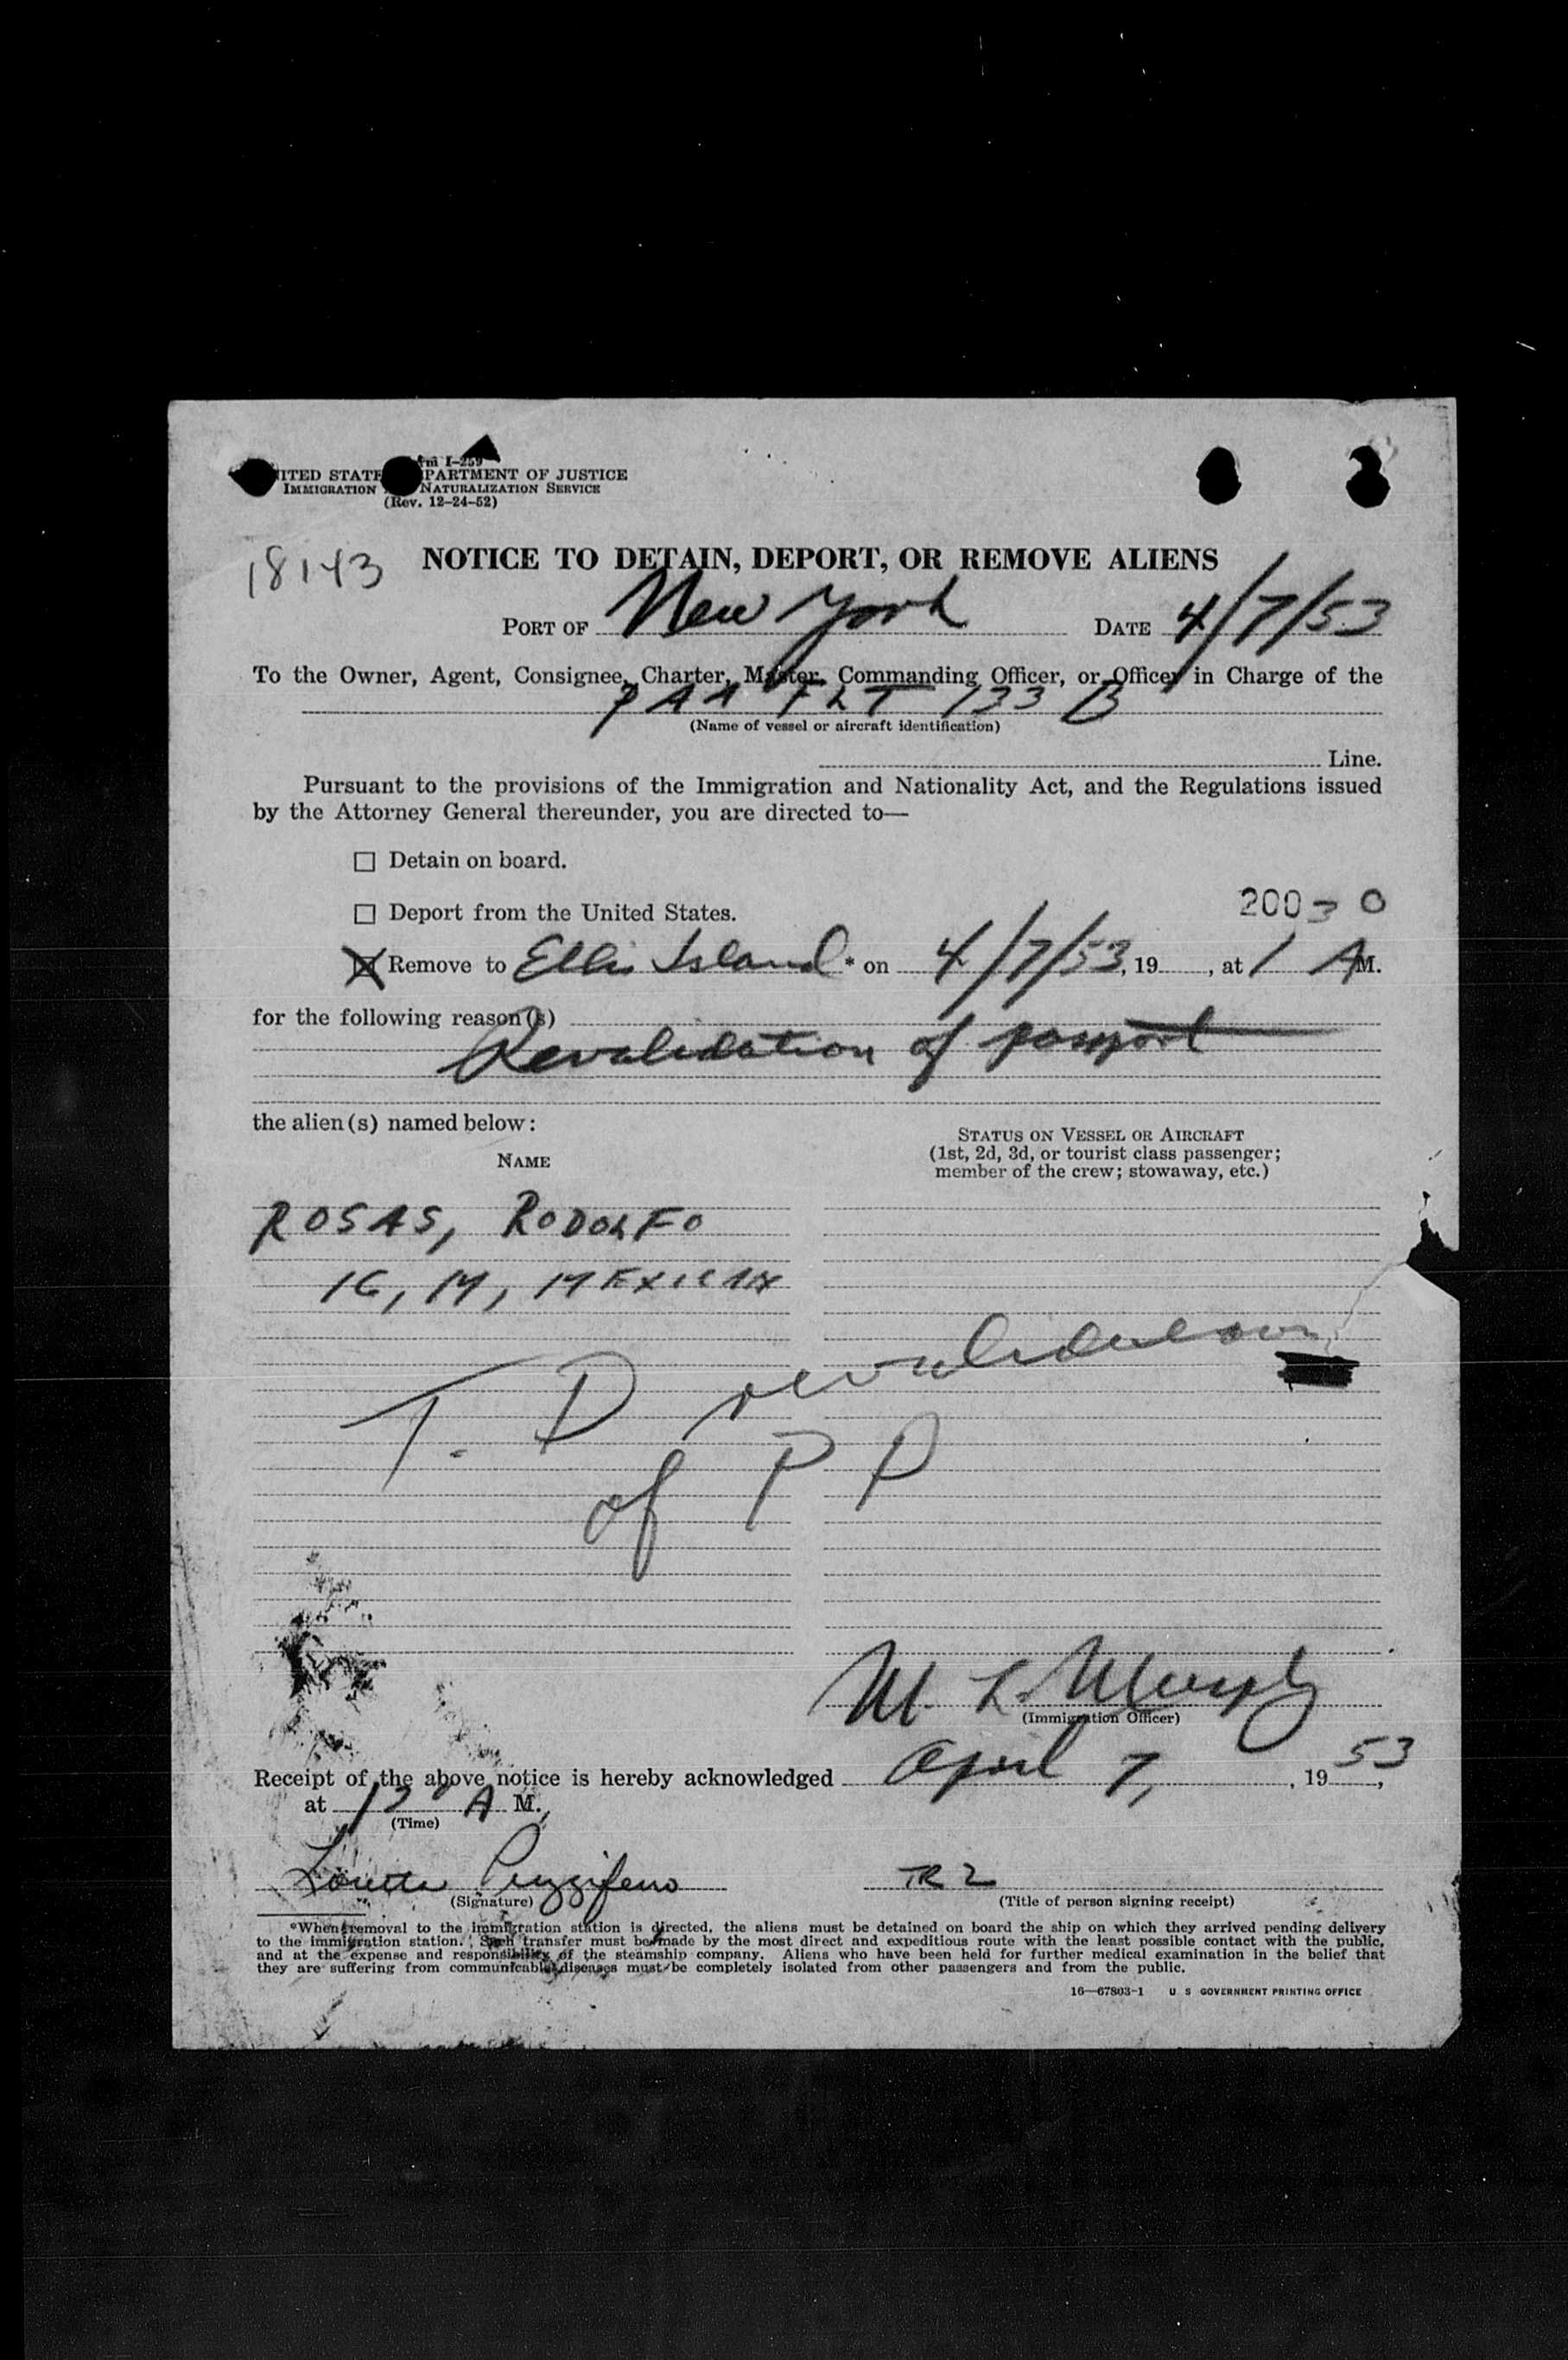 Form I-259
UNITED STATES DEPARTMENT OF JUSTICE
IMMIGRATION NATURALIZATION SERVICE
(Rev. 12-24-52)
18143
NOTICE TO DETAIN, DEPORT, OR REMOVE ALIENS
PORT OF New York DATE 4/7/53
To the Owner, Agent, Consignee, Charter, Master, Commanding Officer, or Officer in Charge of the
PAA FLT 133 B
(Name of vessel or aircraft identification)
Line.
Pursuant to the provisions of the Immigration and Nationality Act, and the Regulations issued
by the Attorney General thereunder, you are directed to—
☐ Detain on board.
☐ Deport from the United States.
200 30
☒ Remove to Ellis Island * on 4/7/53, 19, at 1 A M.
for the following reason(s)
Revalidation of passport
the alien(s) named below:
NAME
STATUS ON VESSEL OR AIRCRAFT
(1st, 2d, 3d, or tourist class passenger;
member of the crew; stowaway, etc.)
ROSAS, RODOLFO
16, M, MEXICAN
T. D revalidation
of P P
M. L. Murphy
(Immigration Officer)
Receipt of the above notice is hereby acknowledged April 7, 1953,
at 130 A M.,
(Time)
(Signature)
TR 2
(Title of person signing receipt)
*When removal to the immigration station is directed, the aliens must be detained on board the ship on which they arrived pending delivery
to the immigration station. Such transfer must be made by the most direct and expeditious route with the least possible contact with the public,
and at the expense and responsibility of the steamship company. Aliens who have been held for further medical examination in the belief that
they are suffering from communicable diseases must be completely isolated from other passengers and from the public.
16—67803-1 U S GOVERNMENT PRINTING OFFICE